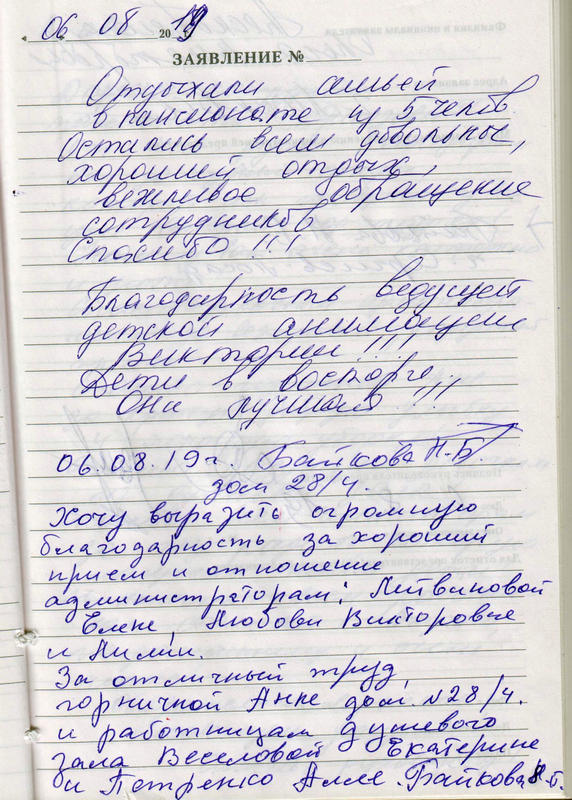 « 06 » 08 2019
ЗАЯВЛЕНИЕ №
Отдыхали семьей
в пансионате из 5 челов.
Остались всем довольные,
хороший отдых,
вежливое обращение
сотрудников
Спасибо !!!
Благодарность ведущей
детской анимации
Виктории !!!
Дети в восторге.
Она лучшая !!!
06.08.19г. Байкова Н.Б.
дом 28/4.
Хочу выразить огромную
благодарность за хороший
прием и отношение
администраторам: Литвиновой
Елене, Любови Викторовне
и Лилии.
За отличный труд,
горничной Анне дом. №28/4.
и работницам душевого
зала Веселовой Екатерине
и Петренко Алле. Байкова Н.Б.